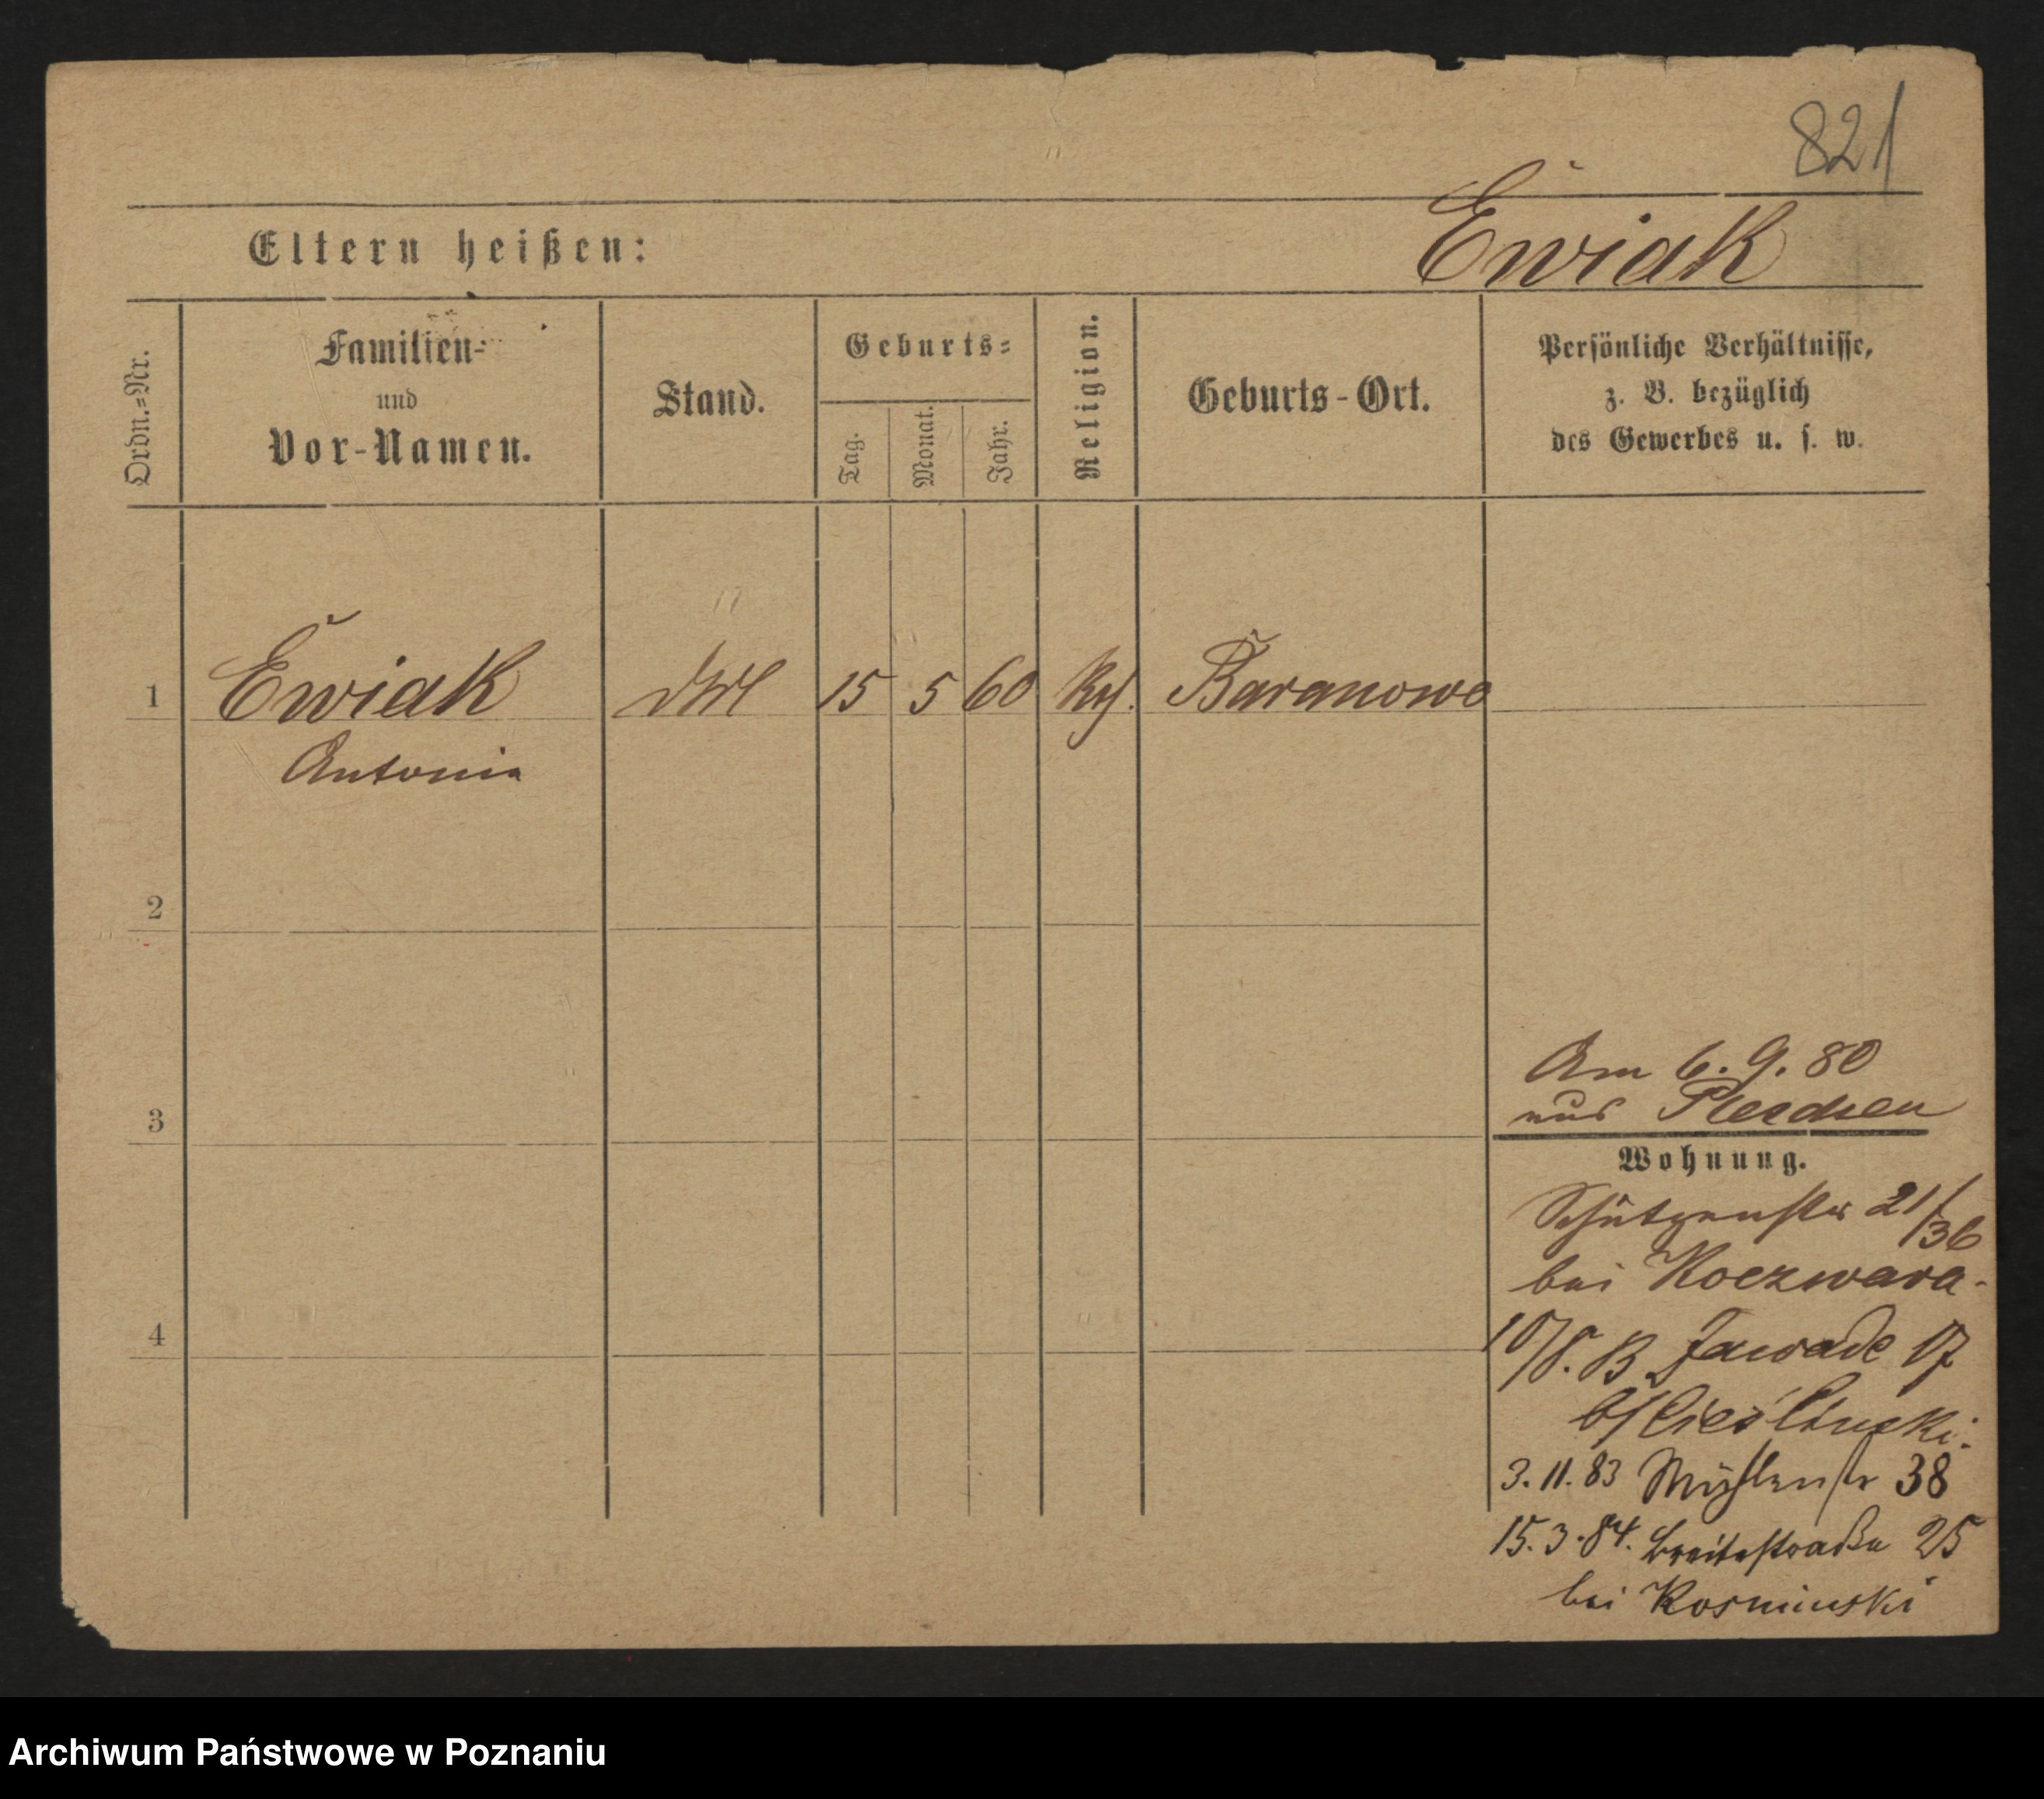 821
Eltern heißen:
Ewiak
Ordn.-Nr.
Familien-
und
Vor-Namen.
Stand.
Geburts-
Tag.
Monat.
Jahr.
Religion.
Geburts-Ort.
Persönliche Verhältnisse,
z. B. bezüglich
des Gewerbes u. s. w.
1 Ewiak 15 5 60 Baranowo
Antonia
2
3
4
Am 6. 9. 80
aus Pleschen
Wohnung.
Schützenstr 21/36
bei Koczwara.
10/8. Zawade 17
b/Cieslinski.
3. 11. 83 Mühlenstr 38
15. 3. 84. Breitestraße 25
bei Kosminski
Archiwum Państwowe w Poznaniu